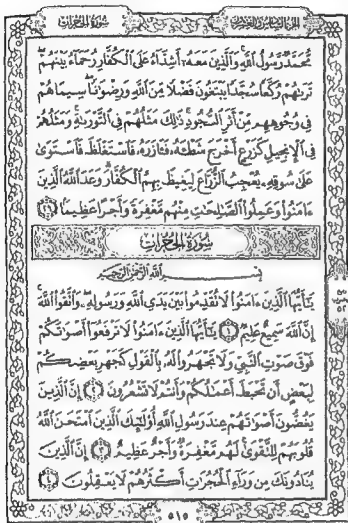 الجزء السادس والعشرون
سورة الحجرات
مُّحَمَّدٌ رَّسُولُ ٱللَّهِ وَٱلَّذِينَ مَعَهُۥٓ أَشِدَّآءُ عَلَى ٱلْكُفَّارِ رُحَمَآءُ بَيْنَهُمْ
تَرَىٰهُمْ رُكَّعًا سُجَّدًا يَبْتَغُونَ فَضْلًا مِّنَ ٱللَّهِ وَرِضْوَٰنًا سِيمَاهُمْ
فِى وُجُوهِهِم مِّنْ أَثَرِ ٱلسُّجُودِ ذَٰلِكَ مَثَلُهُمْ فِى ٱلتَّوْرَىٰةِ وَمَثَلُهُمْ
فِى ٱلْإِنجِيلِ كَزَرْعٍ أَخْرَجَ شَطْـَٔهُۥ فَـَٔازَرَهُۥ فَٱسْتَغْلَظَ فَٱسْتَوَىٰ
عَلَىٰ سُوقِهِۦ يُعْجِبُ ٱلزُّرَّاعَ لِيَغِيظَ بِهِمُ ٱلْكُفَّارَ وَعَدَ ٱللَّهُ ٱلَّذِينَ
ءَامَنُوا۟ وَعَمِلُوا۟ ٱلصَّٰلِحَٰتِ مِنْهُم مَّغْفِرَةً وَأَجْرًا عَظِيمًۢا ٢٩
سُورَةُ الحُجُرَاتِ
بِسْمِ ٱللَّهِ ٱلرَّحْمَٰنِ ٱلرَّحِيمِ
يَٰٓأَيُّهَا ٱلَّذِينَ ءَامَنُوا۟ لَا تُقَدِّمُوا۟ بَيْنَ يَدَىِ ٱللَّهِ وَرَسُولِهِۦ وَٱتَّقُوا۟ ٱللَّهَ
إِنَّ ٱللَّهَ سَمِيعٌ عَلِيمٌ ١ يَٰٓأَيُّهَا ٱلَّذِينَ ءَامَنُوا۟ لَا تَرْفَعُوٓا۟ أَصْوَٰتَكُمْ
فَوْقَ صَوْتِ ٱلنَّبِىِّ وَلَا تَجْهَرُوا۟ لَهُۥ بِٱلْقَوْلِ كَجَهْرِ بَعْضِكُمْ
لِبَعْضٍ أَن تَحْبَطَ أَعْمَٰلُكُمْ وَأَنتُمْ لَا تَشْعُرُونَ ٢ إِنَّ ٱلَّذِينَ
يَغُضُّونَ أَصْوَٰتَهُمْ عِندَ رَسُولِ ٱللَّهِ أُو۟لَٰٓئِكَ ٱلَّذِينَ ٱمْتَحَنَ ٱللَّهُ
قُلُوبَهُمْ لِلتَّقْوَىٰ لَهُم مَّغْفِرَةٌ وَأَجْرٌ عَظِيمٌ ٣ إِنَّ ٱلَّذِينَ
يُنَادُونَكَ مِن وَرَآءِ ٱلْحُجُرَٰتِ أَكْثَرُهُمْ لَا يَعْقِلُونَ ٤
٥١٥